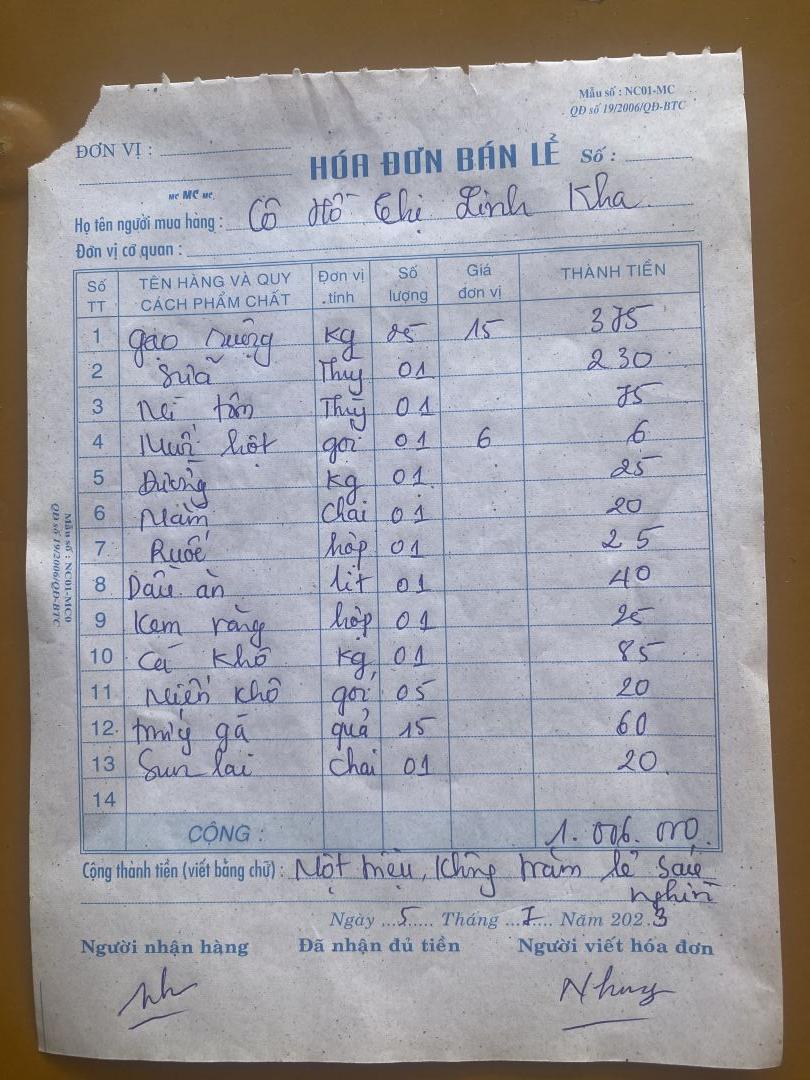 Mẫu số : NC01-MC
QĐ số 19/2006/QĐ-BTC
ĐƠN VỊ :
HÓA ĐƠN BÁN LẺ Số :
MC MC MC
Họ tên người mua hàng : Cô Hồ Thị Linh Kha
Đơn vị cơ quan :
Số TT TÊN HÀNG VÀ QUY CÁCH PHẨM CHẤT Đơn vị tính Số lượng Giá đơn vị THÀNH TIỀN
1 gạo ruộng kg 25 15 375
2 Sữa Thùy 01 230
3 Mì tôm Thùy 01 75
4 Muối hột gói 01 6 6
5 Đường kg 01 25
6 Mắm chai 01 20
7 Ruốc hộp 01 25
8 Dầu ăn lít 01 40
9 kem răng hộp 01 25
10 Cá khô kg 01 85
11 Miến khô gói 05 20
12 trứng gà quả 15 60
13 Sun lai chai 01 20
14
CỘNG : 1.006.000
Cộng thành tiền (viết bằng chữ) : Một triệu, không trăm lẻ sáu
nghìn
Ngày 5 Tháng 7 Năm 2023
Người nhận hàng Đã nhận đủ tiền Người viết hóa đơn
Nhung
Mẫu số : NC01-MC0
QĐ số 19/2006/QĐ-BTC